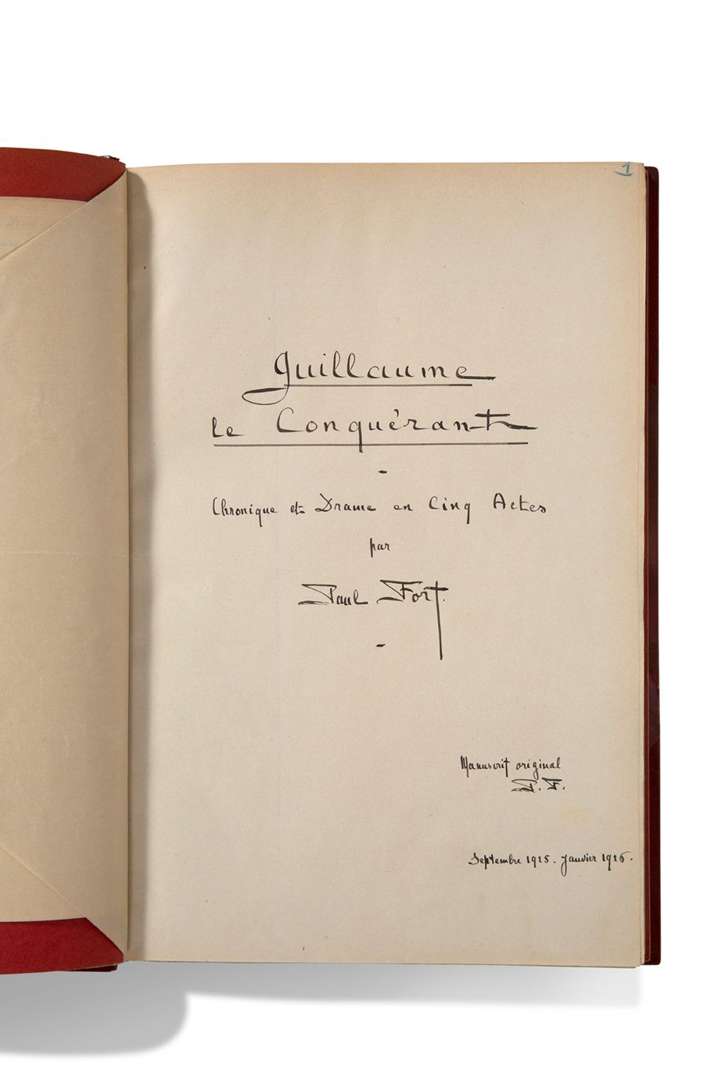 1
Guillaume
le Conquérant
-
Chronique et Drame en Cinq Actes
par
Paul Fort.
-
Manuscrit original
P. F.
Septembre 1925. Janvier 1926.